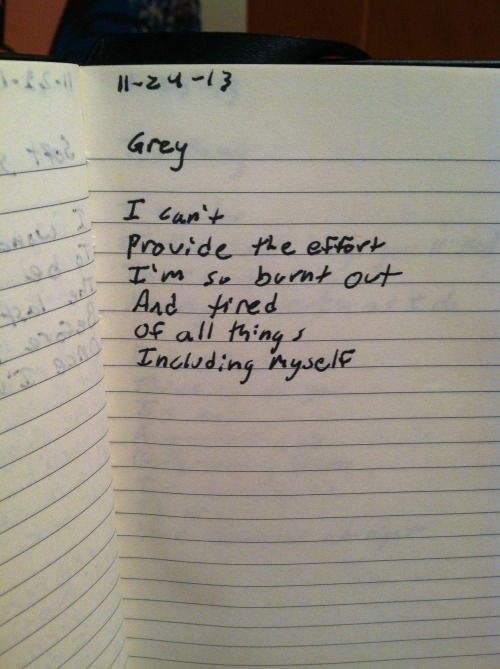 11-24-13
Grey
I can't
Provide the effort
I'm so burnt out
And tired
Of all things
Including myself